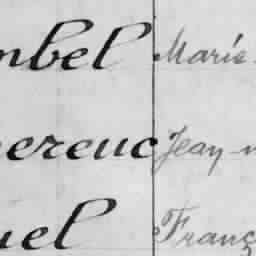 mbel Marie
erenc Jean-
uel Franç